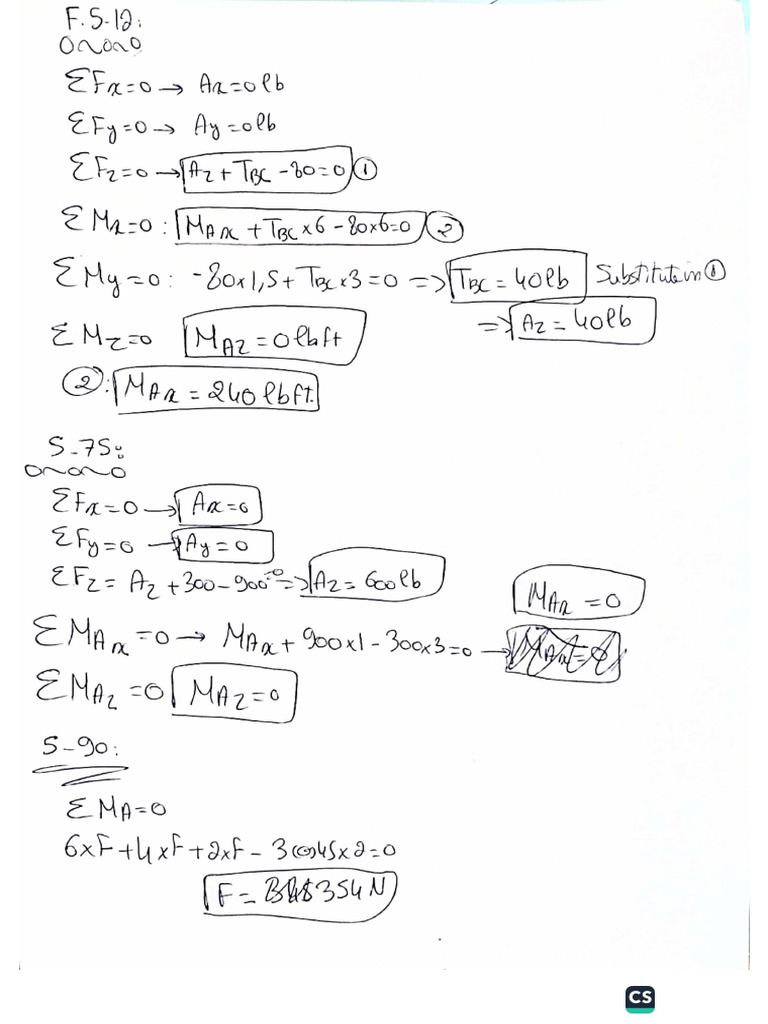 F.5-12:
ΣFx=0 → Ax=0lb
ΣFy=0 → Ay=0lb
ΣFz=0 → Az + TBC - 80=0 ①
ΣMx=0: MAx + TBC×6 - 80×6=0 ②
ΣMy=0: -80×1,5 + TBC×3=0 => TBC = 40lb Substitute in ①
=> Az = 40lb
ΣMz=0 MAz = 0lbft
②: MAx = 240lbft.
5-75:
ΣFx=0 → Ax=0
ΣFy=0 → Ay=0
ΣFz= Az +300-900=0 => Az = 600lb
MAx = 0
ΣMAx=0 → MAx + 900×1 - 300×3=0 →
ΣMAz=0 MAz=0
5-90:
ΣMA=0
6×F+4×F+2×F - 3cos45×2=0
F= 354N
CS